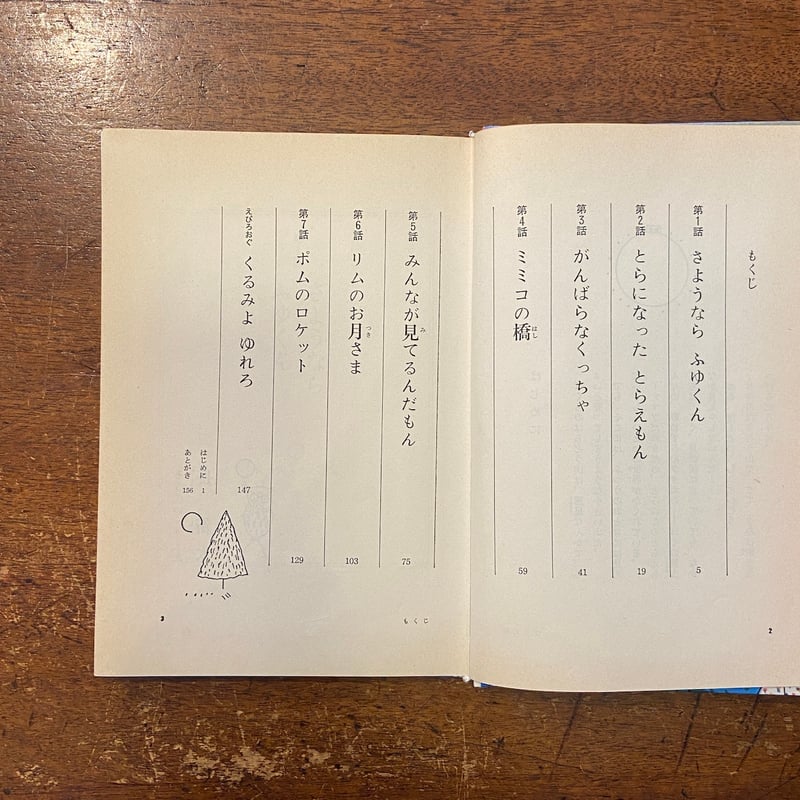 もくじ
第1話 さようなら ふゆくん 5
第2話 とらになった とらえもん 19
第3話 がんばらなくっちゃ 41
第4話 ミミコの橋 59
はし
2
第5話 みんなが見てるんだもん 75
み
第6話 リムのお月さま 103
つき
第7話 ポムのロケット 129
えぴろおぐ くるみよ ゆれろ 147
はじめに 1
あとがき 156
もくじ
3